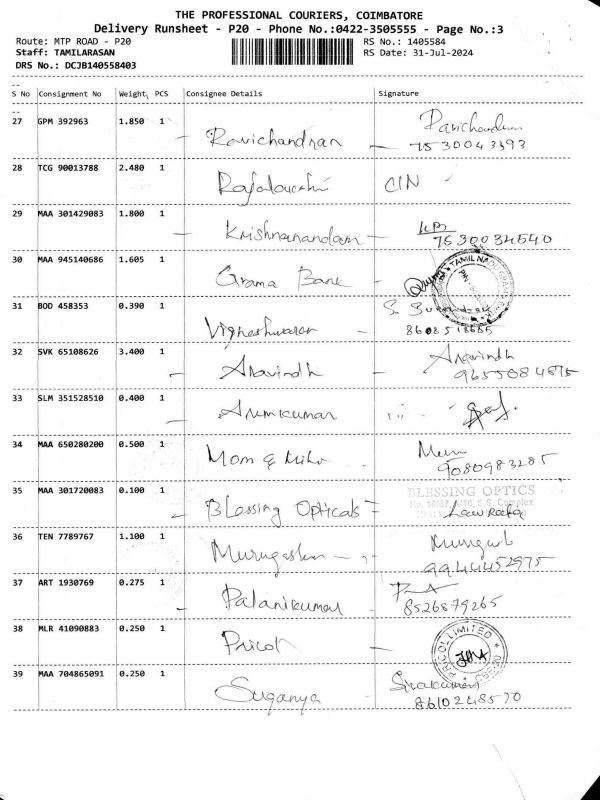 THE PROFESSIONAL COURIERS, COIMBATORE
Delivery Runsheet - P20 - Phone No.:0422-3505555 - Page No.:3
Route: MTP ROAD - P20
RS No.: 1405584
Staff: TAMILARASAN
RS Date: 31-Jul-2024
DRS No.: DCJB140558403
S No Consignment No Weight PCS Consignee Details Signature
27 GPM 392963 1.850 1 Ravichandran Ravichandran
7530043393
28 TCG 90013788 2.480 1 Rajalakshmi CIN
29 MAA 301429083 1.800 1 Krishnanandam
7530034540
30 MAA 945140686 1.605 1 Grama Bank
TAMIL NADU
31 BOD 458353 0.390 1 Vigneshwaran S.
32 SVK 65108626 3.400 1 Aravindh Aravindh
9655084875
33 SLM 351528510 0.400 1 Arunkumar
34 MAA 650280200 0.500 1 Mom &
9080983285
35 MAA 301720083 0.100 1 Blessing Opticals
BLESSING OPTICS
S.S. Complex
36 TEN 7789767 1.100 1 Murugeshan
9944452975
37 ART 1930769 0.275 1 Palanikumar
8526879265
38 MLR 41090883 0.250 1 Pricol
PRICOL LIMITED
39 MAA 704865091 0.250 1 Suganya Sivakumar
8610248570